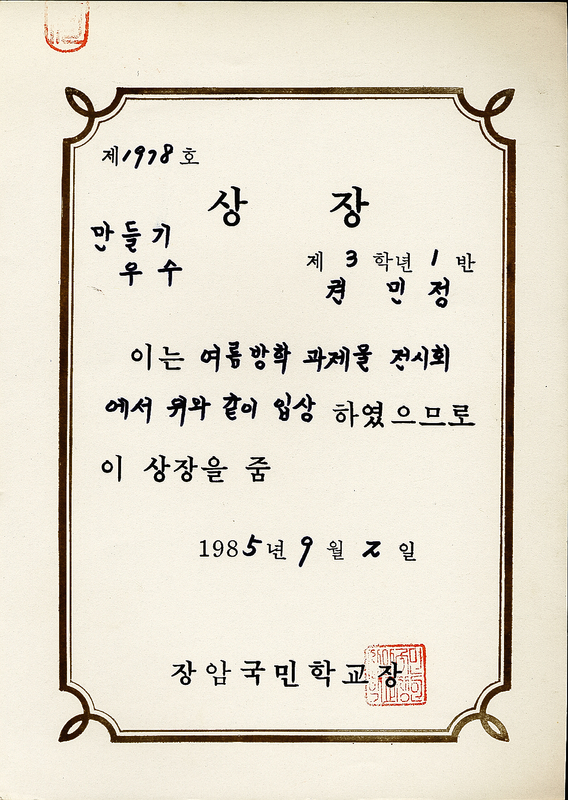 제1978호
상 장
만들기
우수
제 3 학년 1 반
권 민 정
이는 여름방학 과제물 전시회
에서 위와 같이 입상 하였으므로
이 상장을 줌
1985년 9월 2일
장암국민학교장